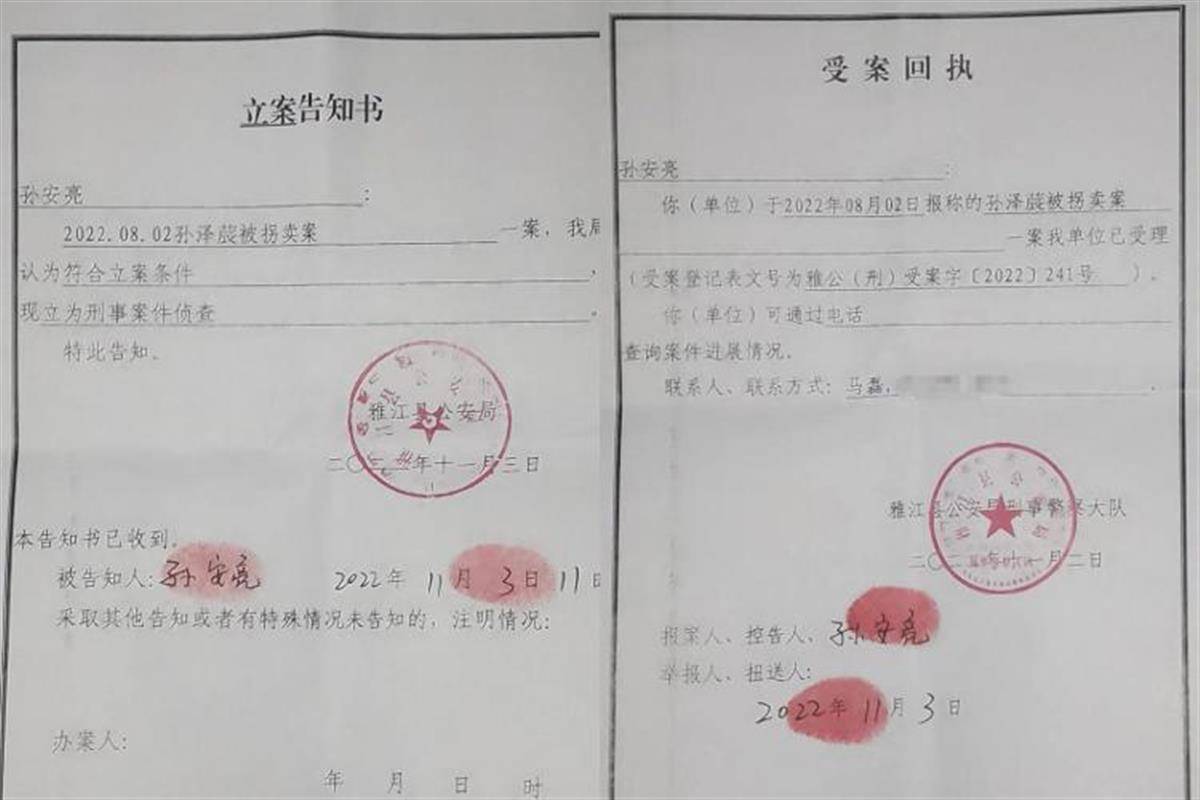 立案告知书
孙安亮:
2022.08.02孙泽蕤被拐卖案一案，我局
认为符合立案条件，
现立为刑事案件侦查。
特此告知。
雅江县公安局
二〇二二年十一月三日
本告知书已收到。
被告知人: 孙安亮 2022年 11月 3日 11时
采取其他告知或者有特殊情况未告知的，注明情况:
办案人:
年 月 日 时
受案回执
孙安亮:
你（单位）于2022年08月02日报称的孙泽蕤被拐卖案
一案我单位已受理
（受案登记表文号为雅公（刑）受案字〔2022〕241号）。
你（单位）可通过电话
查询案件进展情况。
联系人、联系方式: 马磊，.
雅江县公安局刑事警察大队
二〇二二年十一月二日
报案人、控告人、孙安亮
举报人、扭送人:
2022年 11月 3日